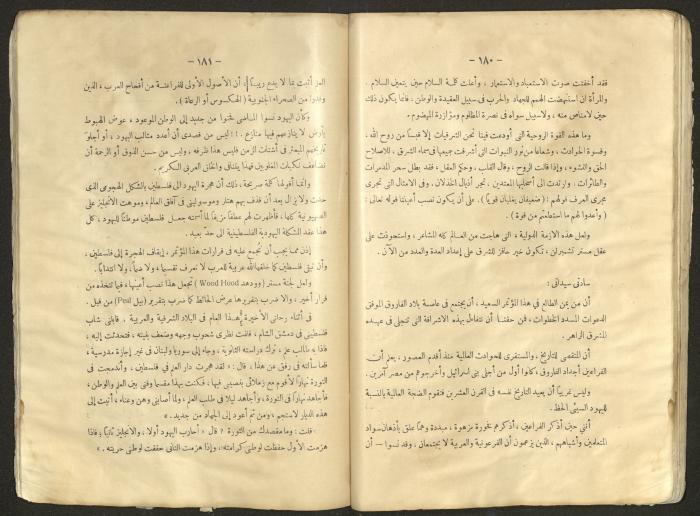 — ١٨٠ —
فقد أخفتت صوت الاستعباد والاستعمار ، وأعلت كلمة السلام حين يتعين السلام .
والمرأة ان استنهضت الهمم للجهاد والحرب فى سبيل العقيدة والوطن . فانما يكون ذلك
حين لا مناص منه ، ولا سبيل سواه فى نصرة المظلوم ومؤازرة المهضوم .
وما هذه القوة الروحية التى أودعت فينا نحن الشرقيات إلا قبسا من روح الله ،
وقسوة الحوادث ، وشعاعا من نور النبوات التى أشرقت جميعها فى سماء الشرق ، للاصلاح
الحق والنشوء ، وإذا قالت الروح ، وقال القلب ، وحكم العقل ، فقد بطل سحر المدمرات
والطائرات ، وارتدت الى أسحلها المعتدين ، تجر أذيال الخذلان . وفى الامثال التى تجرى
مجرى العرف قولهم : ( ضعيفان يغلبان قوياً ) . على أن يكون نصب أعيننا قوله تعالى :
( وأعدوا لهم ما استطعتم من قوة ) .
ولعل هذه الازمة الدولية ، التى هاجت من العالم كله المشاعر ، واستحوذت على
عقل مستر تشمبرلن ، تكون خير حافز للشرق على إعداد العدة والعدد من الآن .
سادتى سيداتى :
أن من يمن الطالع فى هذا المؤتمر السعيد ، أن يجتمع فى عاصمة بلاد الفاروق الموفق
الدعوات المسدد الخطوات ، فمن حقنا أن نتفاءل بهذه الاشراقة التى تتجلى فى عهده
المشرق الزاهر .
أن المتقصى للتاريخ ، والمستقرى للحوادث العالمية منذ أقدم العصور ، يعلم أن
الفراعين أجداد الفاروق ، كانوا أول من أجلى بنى اسرائيل وأخرجوهم من مصر آمرين .
وليس غريباً أن يعيد التاريخ نفسه فى القرن العشرين فتقوم الضجة العالمية بالنسبة
لليهود السيئى الحظ .
أننى حين أذكر الفراعين ، أذكرهم فخورة مزهوة ، مبددة وهماً علق بأذهان سواد
المتعلمين وأشباههم ، الذين يزعمون أن الفرعونية والعربية لا يجتمعان ، وقد نسوا — أن
— ١٨١ —
العلم أثبت بما لا يدع ريبا ، أن الأصول الأولى للفراعنة من أقحاح العرب ، الذين
وفدوا من الصحراء الجنوبية ( الهكسوس أو الرعاة ) .
وكأن اليهود نسوا الماضى فحنوا من جديد إلى الوطن الموعود ، عوض الهبوط
بأرض لا ينازعهم فيها منازع !! ليس من قصدى أن أعدد مثالب اليهود ، أو أجلو
تاريخهم المبعثر فى أشتات الزمن فليس هذا ظرفه ، وليس من حسن الذوق أو الرحمة أن
نضاعف نكبات المغلوبين فهذا يتنافى والخلق العربى الكريم .
وانما أقولها كلمة صريحة ، ذلك أن هجرة اليهود الى فلسطين بالشكل الهجومى الذى
حدث ولا يزال بعد أن قذف بهم هتلر وموسولينى فى آفاق العالم ، وموهت الانجليز على
الصهيونية كلها ، فأظهرت لهم عطفا مزيفا لما أمنته جعل فلسطين موطناً لليهود ، كل
هذا عقد المشكلة اليهودية الفلسطينية الى حد بعيد .
إذن مما يجب أن نجمع عليه فى قرارات هذا المؤتمر ، إيقاف الهجرة إلى فلسطين ،
وأن تبقى فلسطين كما خلقها الله عربية للعرب لا نعرف تقسيما ، ولا ضماً ، ولا انتداباً .
ولعل لجنة مستر ( وودهد Wood Hood ) تجعل هذا نصب أعينها ، فيما تتخذه من
قرار أخير ، والا ضرب بتقريرها عرض الحائط كما ضرب بتقرير ( بيل Peul ) من قبل .
فى أثناء رحلتى الأخيرة هذا العام فى البلاد الشرقية والعربية . قابلنى شاب
فلسطينى فى دمشق الشام ، فلفت نظرى شحوب وجهه وضعف بنيته ، فتحدثت إليه ،
فاذا به طالب علم ، ترك دراسته الثانوية ، وجاء إلى سوريا ولبنان فى غير إجازة مدرسية ،
فلما سألته فى رفق من هذا ، قال : « لقد هجرت دار العلم فى فلسطين ، وأندمجت فى
الثورة نهاراً لأقوم مع زملائى بنصيبى فيها ، فكنت بهذا مقسما وقتى بين العلم والوطن ،
فأجاهد نهاراً فى الثورة ، وأجاهد ليلا فى طلب العلم ، ولما أصابنى وهن وعناء ، أتيت إلى
هذه الديار لاستجم ، ومن ثم أعود إلى الجهاد من جديد . »
قلت : وما مقصدك من الثورة ؟ قال « أحارب اليهود أولا ، والانجليز ثانياً ، فاذا
هزمت الأول حفظت لوطنى كرامته ، وإذا هزمت الثانى حققت لوطنى حريته . »